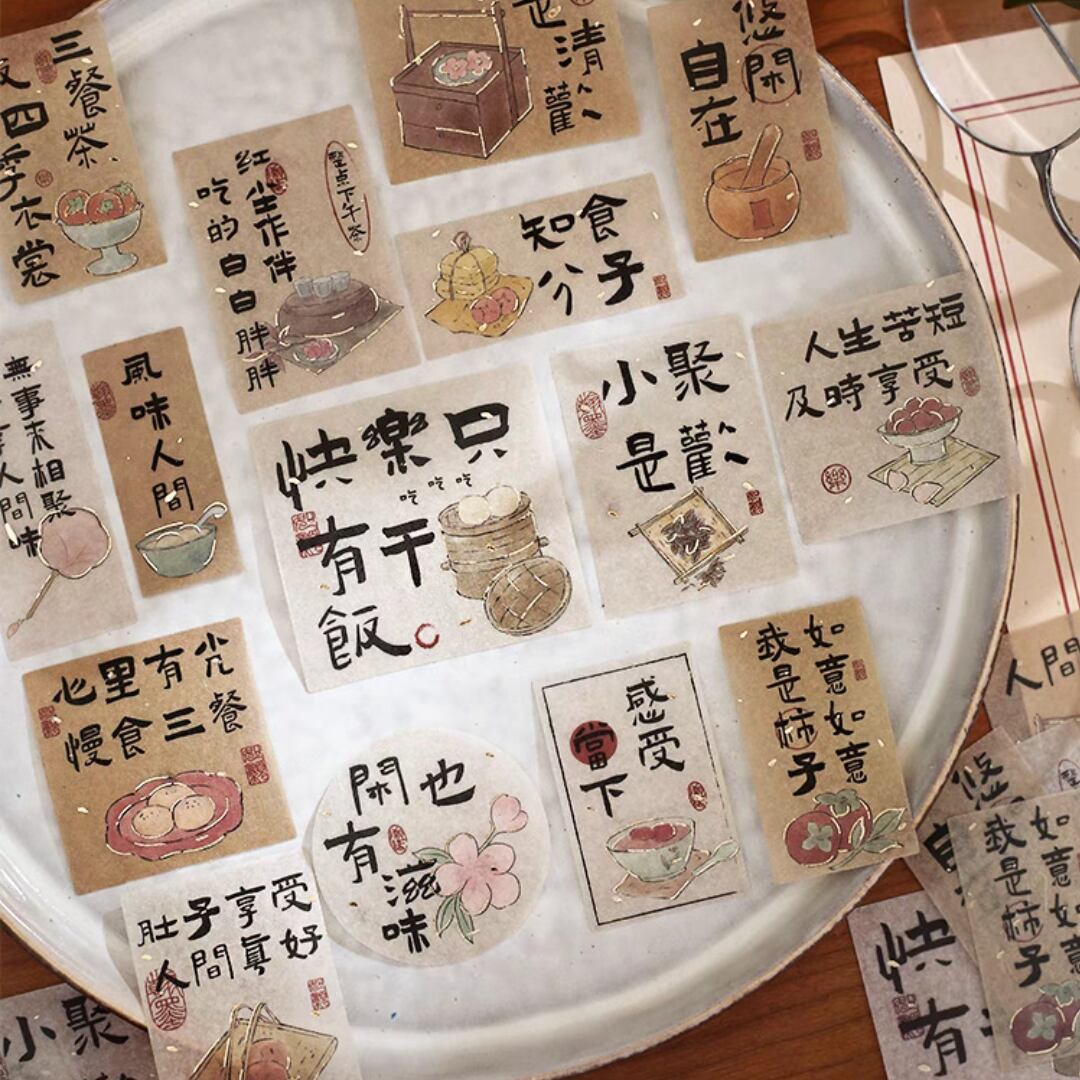 三餐茶
四季衣裳
是清歡
悠閑
自在
紅尘作伴
吃的白白胖胖
整点下午茶
知食
分子
無事来相聚
人間味
風味人間
快樂只
吃吃吃
有干
飯
小聚
是歡
人生苦短
及時享受
心里有光
慢食三餐
閑也
有滋味
感受
當下
如意如意
我是柿子
肚子享受
人間真好
人間
悠
自
如意
我是柿子
快
有
小聚